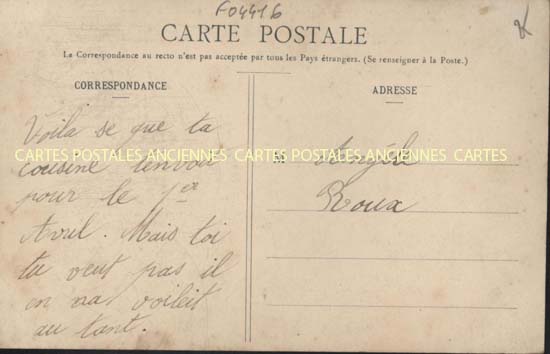 F04416
CARTE POSTALE
La Correspondance au recto n'est pas acceptée par tous les Pays étrangers. (Se renseigner à la Poste.)
CORRESPONDANCE
Voila se que ta
cousine t'envoi
pour le 1er
Avril. Mais toi
tu veut pas il
en na voileit
au tant.
ADRESSE
M Angèle
Roux
CARTES POSTALES ANCIENNES CARTES POSTALES ANCIENNES CARTES